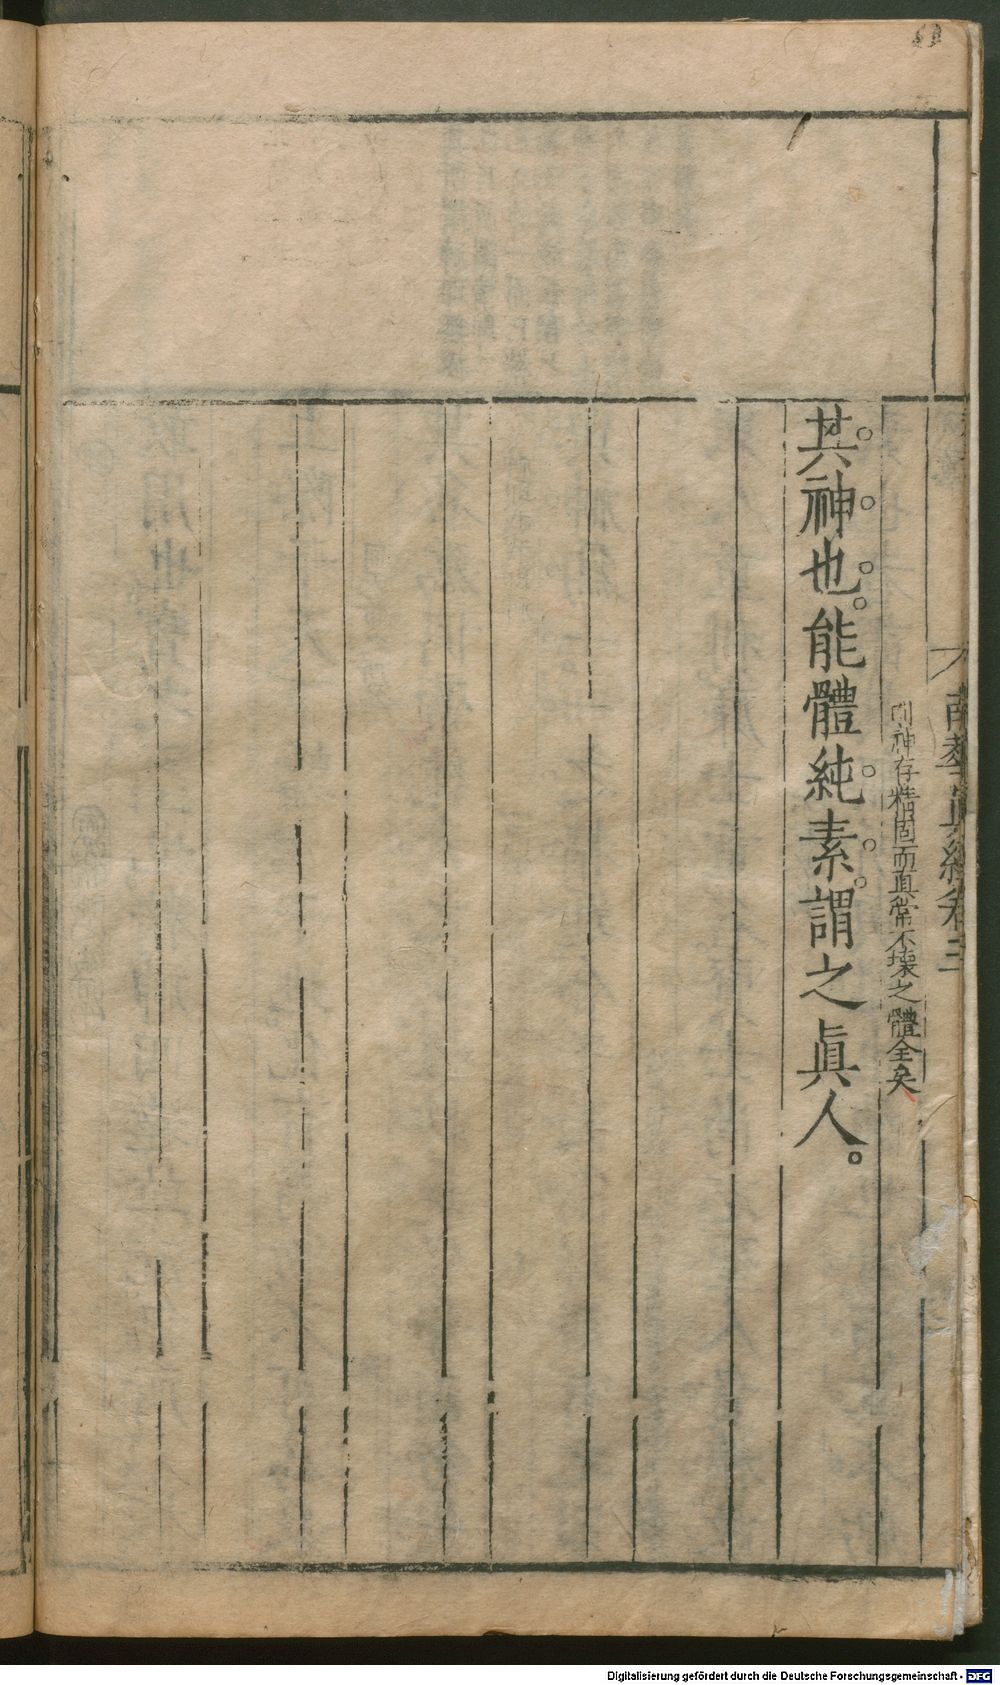 南華真經卷三
則神存精固而真常不壞之體全矣
其神也。能體純素。謂之眞人。
Digitalisierung gefördert durch die Deutsche Forschungsgemeinschaft - DFG